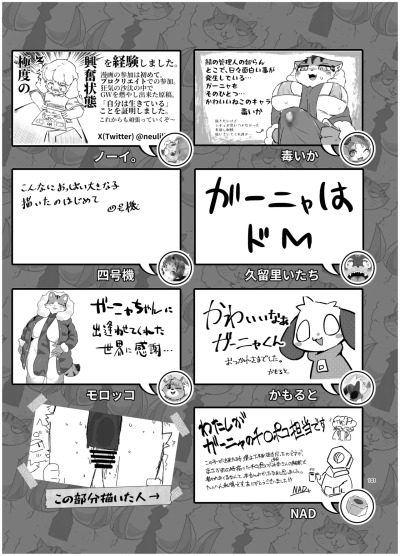 極度の
興奮状態
を経験しました。
漫画の参加は初めて、
プロクリエイトでの参加。
狂気の沙汰の中で
GWを燃やし出来た原稿。
「自分は生きている」
ことを証明しました。
これからも頑張っていくぞ〜
X(Twitter) @neuli
ノーイ。
館の管理人の知らん
とこで、日々面白い事が
発生している…
ガーニャも
そのひとつ…
かわいいねこのキャラ
毒いか
毒いか
こんなにおっぱい大きな子
描いたのはじめて
四号機
四号機
ガーニャは
ドM
久留里いたち
ガーニャちゃんに
出逢がてくれた
世界に感謝…
モロッコ
かわいいなぁ
ガーニャくん
おつかれさまでした。
かもると
かもると
この部分描いた人→
わたしが
ガーニャのチ○ポコ担当です
NAD
NAD